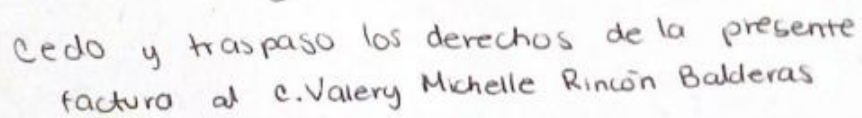 Cedo y traspaso los derechos de la presente
factura al c. Valery Michelle Rincón Balderas